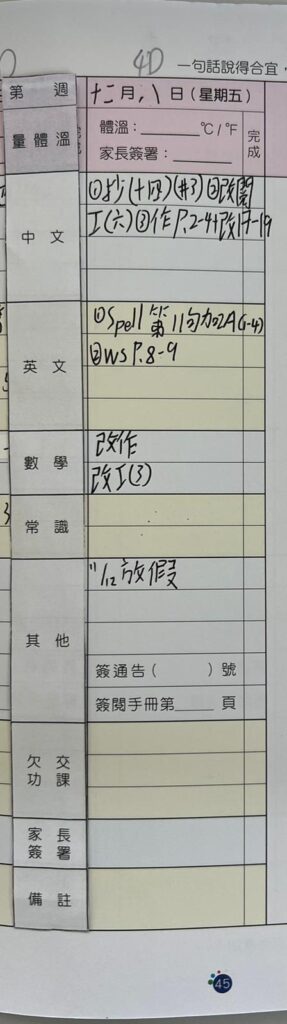 4D 一句話說得合宜，
第 週 十二月八日(星期五)
量體溫 體溫：______℃/℉ 完成
家長簽署：______
中文 ①抄(十四)(#3)②改閱
工(六)③作P.2-4+改17-19
英文 ①Spell 第11句加2A(1-4)
②WS P.8-9
數學 改作
改工(3)
常識
其他 放假
簽通告( )號
簽閱手冊第____頁
欠交功課
家長簽署
備註
45